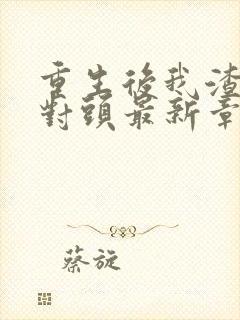 重生後我渣
對頭最新章
蔡旋